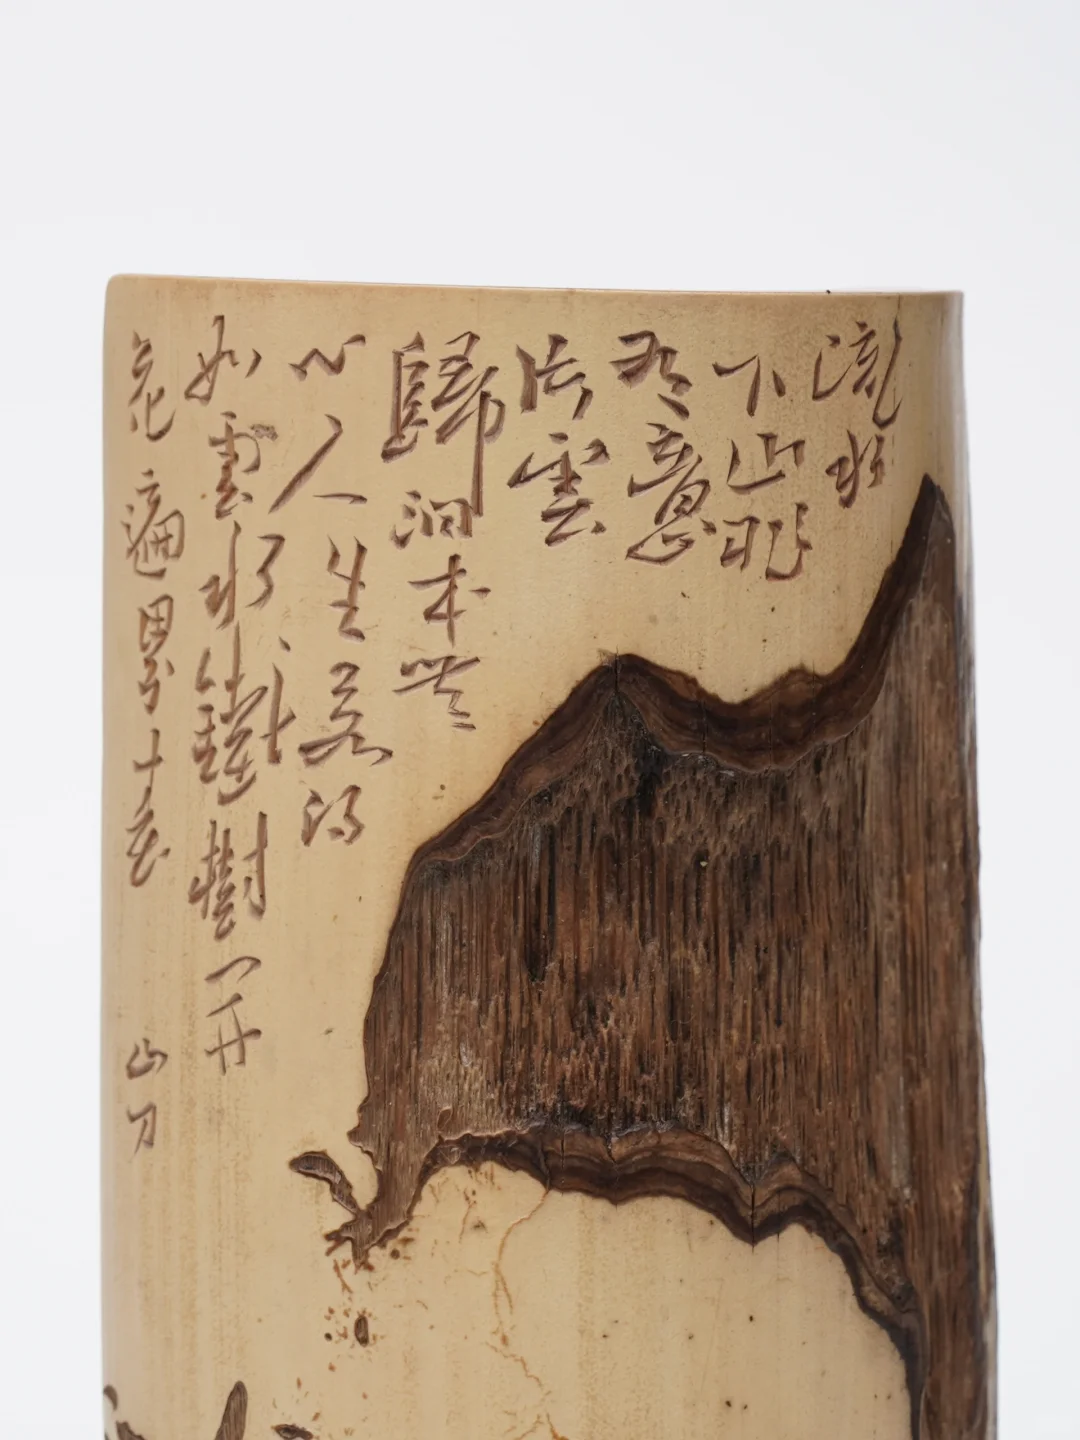 流水
下山非
有意
片雲
歸洞本無
心人生若得
如雲水鐵樹開
花遍界春
山刀